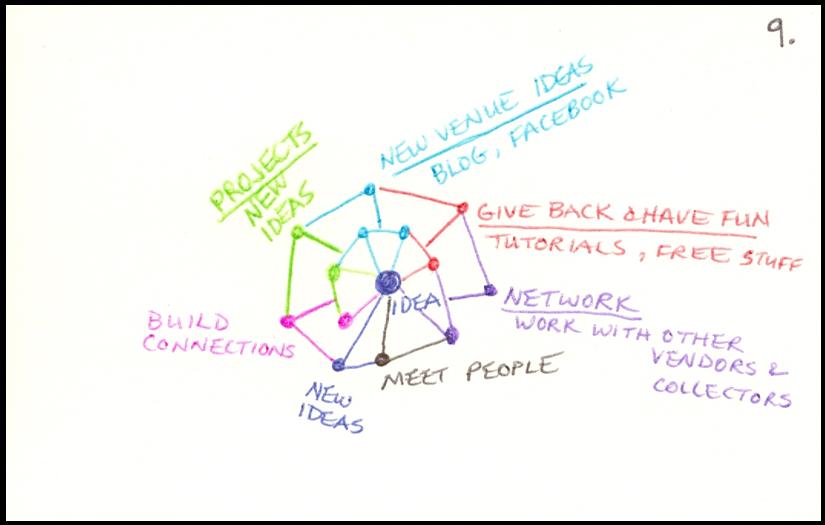 9.
NEW VENUE IDEAS
BLOG, FACEBOOK
PROJECTS
NEW
IDEAS
GIVE BACK & HAVE FUN
TUTORIALS, FREE STUFF
IDEA
NETWORK
WORK WITH OTHER
VENDORS &
COLLECTORS
BUILD
CONNECTIONS
MEET PEOPLE
NEW
IDEAS